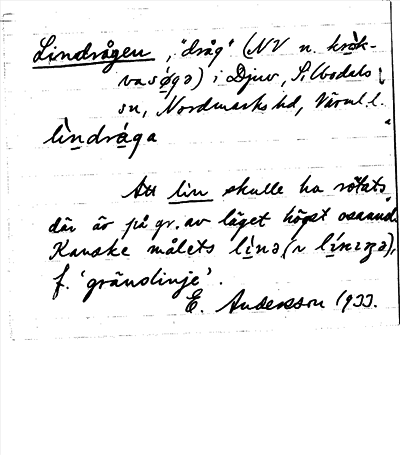 Lindrågen, "dråg" (NV n. kròk-
vasǿgə) i Djuv, Silbodals
sn, Nordmarks hd, Värml. l.
lìndråga
Att lin skulle ha rötats
där är på gr. av läget högst osannol.
Kanske målets lìnə (n línɪzə),
f. 'gränslinje'.
E. Andersson 1933.